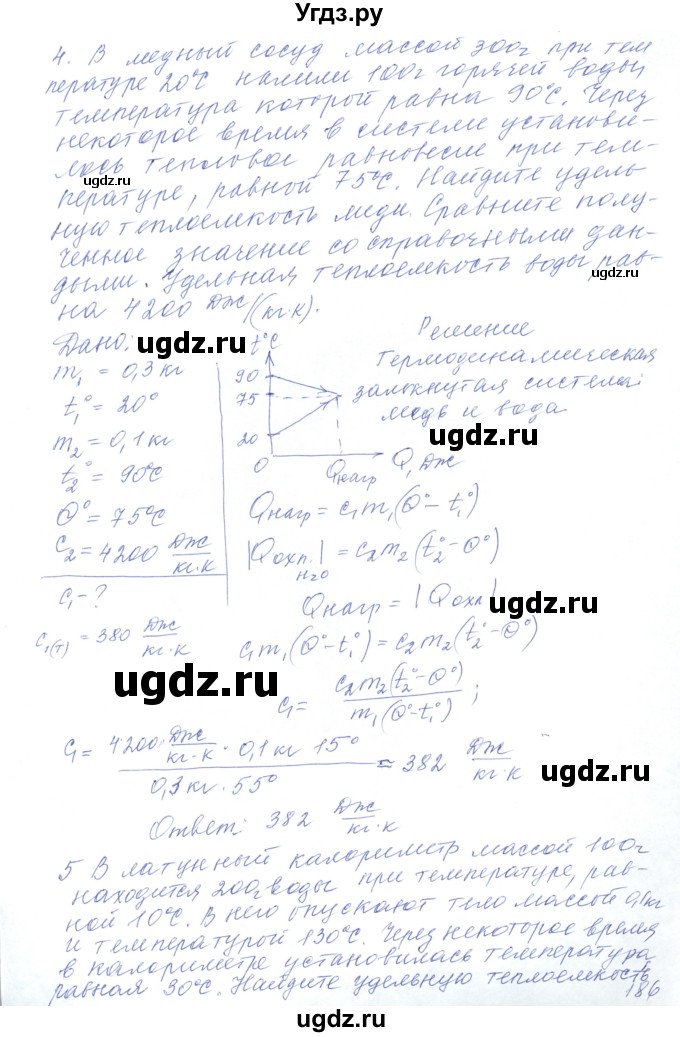 Угдз.ру
4. В медный сосуд массой 300г при тем
пературе 20°С налили 100г горячей воды,
температура которой равна 90°С. Через
некоторое время в системе установи-
лось тепловое равновесие при тем-
пературе, равной 75°С. Найдите удель-
ную теплоемкость меди. Сравните полу-
ченное значение со справочными дан-
дыми. Удельная теплоемкость воды рав-
на 4200 Дж/(кг·К).
ugdz.ru
ugdz.ru
Дано:
m₁ = 0,3 кг
t₁° = 20°
m₂ = 0,1 кг
t₂° = 90°С
Θ° = 75°С
C₂ = 4200 Дж/кг·К
C₁ - ?
C₁(т) = 380 Дж/кг·К
ugdz.ru
t°С
90
75
20
0
Qнагр
Q, Дж
Решение
Термодинамическая
замкнутая система:
медь и вода
ugdz.ru
Qнагр = c₁m₁(Θ° - t₁°)
|Qохл.| H₂O = c₂m₂(t₂° - Θ°)
ugdz.ru
Qнагр = |Qохл|
c₁m₁(Θ° - t₁°) = c₂m₂(t₂° - Θ°)
ugdz.ru
c₁ = c₂m₂(t₂° - Θ°) / m₁(Θ° - t₁°) ;
ugdz.ru
c₁ = 4200 Дж/кг·К · 0,1 кг 15° / 0,3 кг · 55° ≈ 382 Дж/кг·К
ugdz.ru
Ответ: 382 Дж/кг·К
5 В латунный калориметр массой 100г
находится 200г воды при температуре, рав-
ной 10°С. В него опускают тело массой 0,1кг
и температурой 130°С. Через некоторое время
в калориметре установилась температура,
равная 30°С. Найдите удельную теплоемкость
ugdz.ru
ugdz.ru
186
ugdz.ru